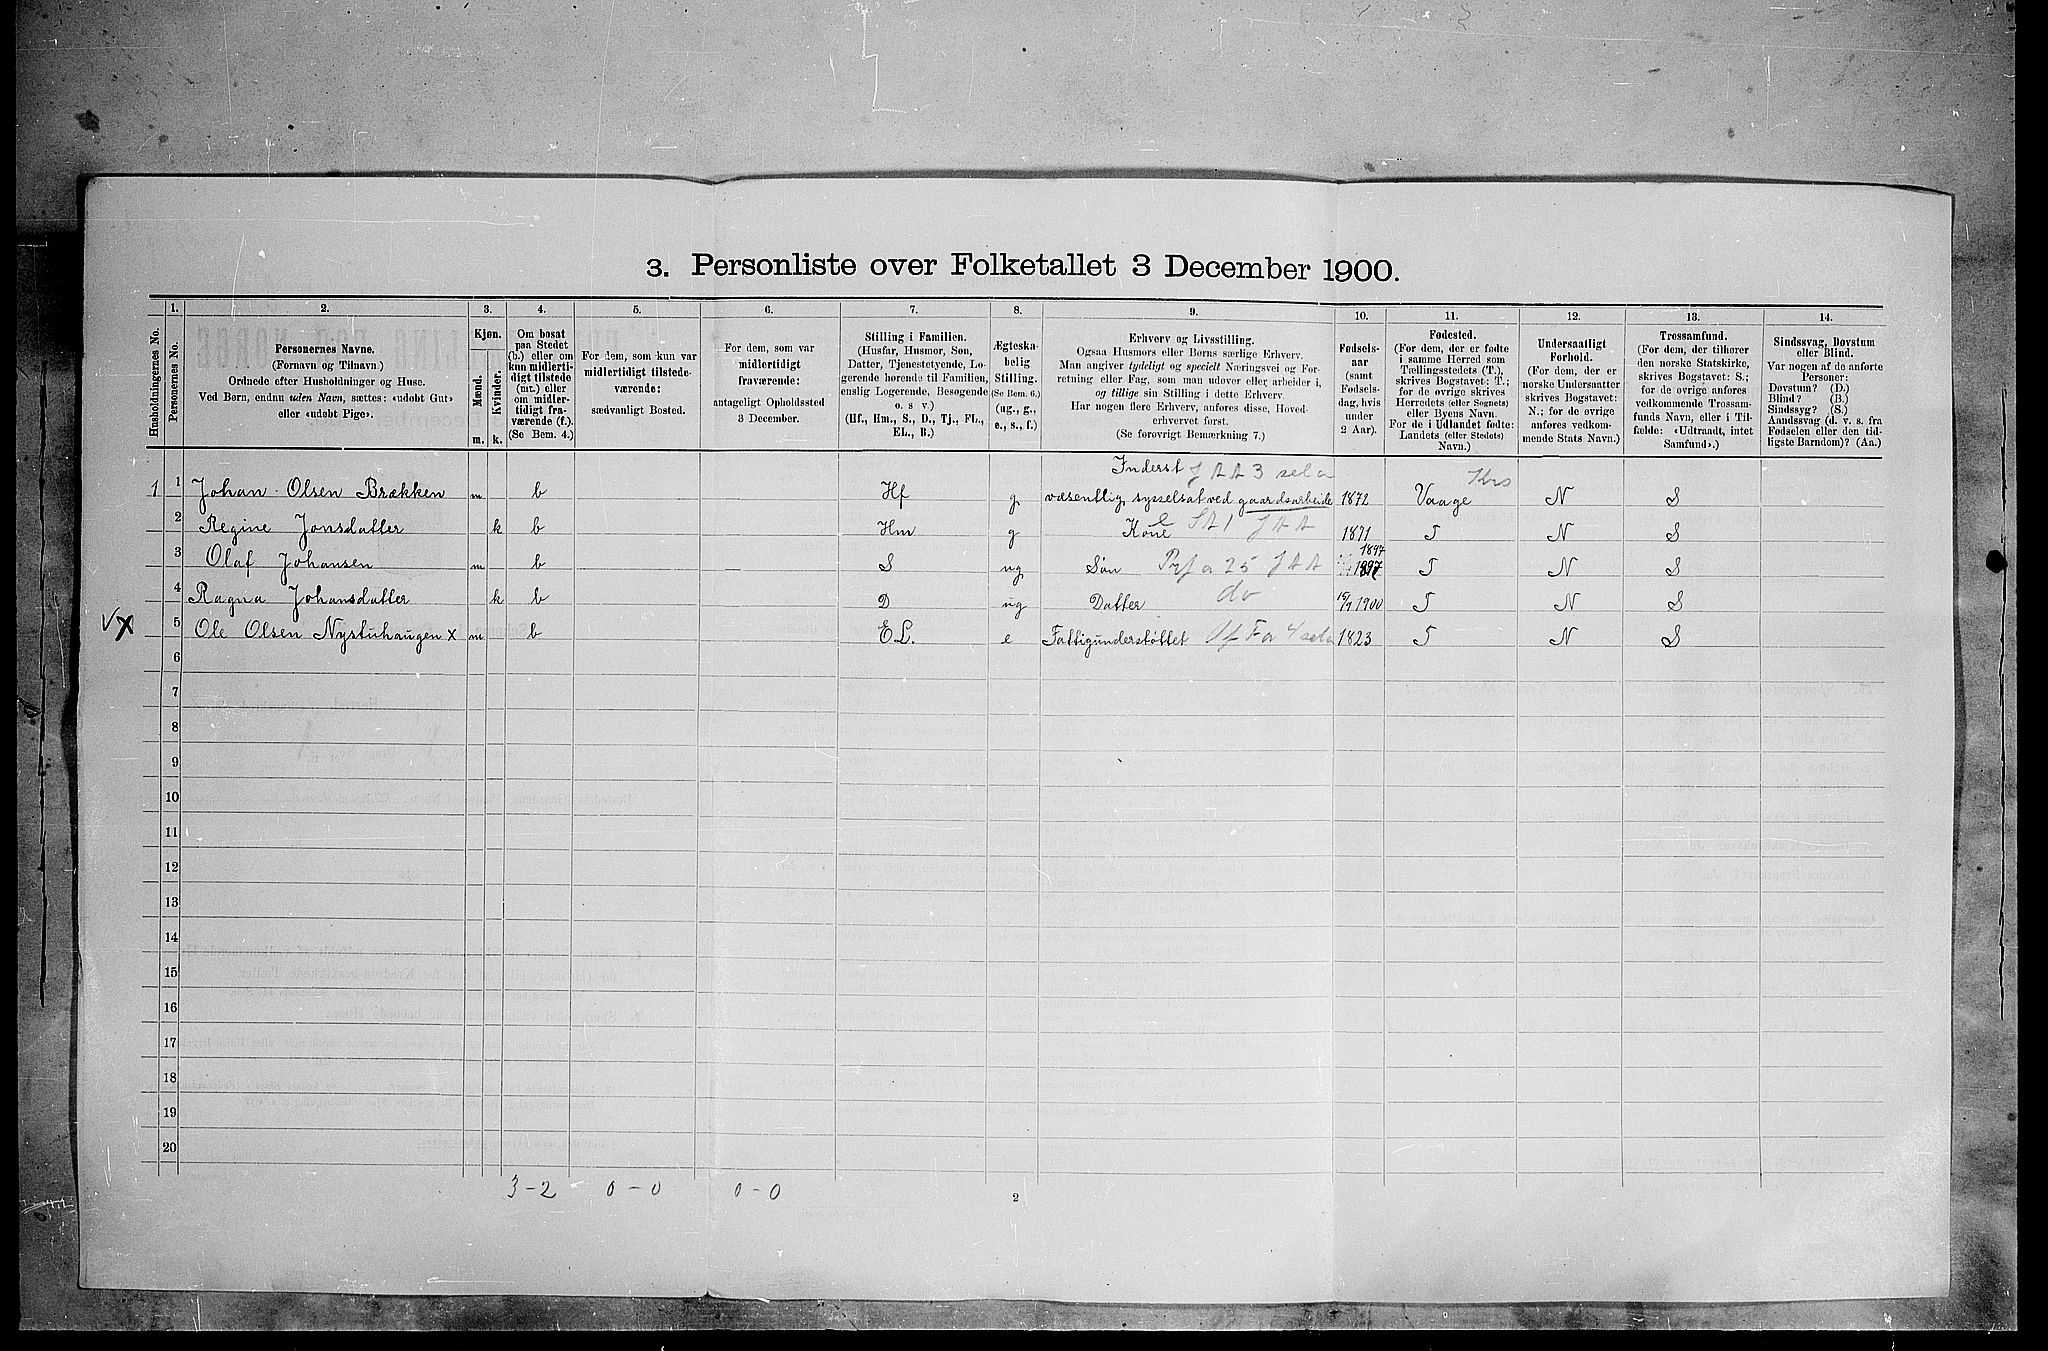 3. Personliste over Folketallet 3 December 1900.
1. 2. 3. 4. 5. 6. 7. 8. 9. 10. 11. 12. 13. 14.
Husholdningernes No.
Personernes No.
Personernes Navne.
(Fornavn og Tilnavn.)
Ordnede efter Husholdninger og Huse.
Ved Børn, endnu uden Navn, sættes: «udøbt Gut»
eller «udøbt Pige».
Kjøn.
Mænd.
Kvinder.
m. k.
Om bosat
paa Stedet
(b.) eller om
kun midlerti-
digt tilstede
(mt.) eller
om midler-
tidigt fra-
værende (f.).
(Se Bem. 4.)
For dem, som kun var
midlertidigt tilstede-
værende:
sædvanligt Bosted.
For dem, som var
midlertidigt
fraværende:
antageligt Opholdssted
3 December.
Stilling i Familien.
(Husfar, Husmor, Søn,
Datter, Tjenestetyende, Lo-
gerende hørende til Familien,
enslig Logerende, Besøgende
o. s. v.)
(Hf., Hm., S., D., Tj., FL.,
EL., B.)
Ægteska-
belig
Stilling.
(Se Bem. 6.)
(ug., g.,
e., s., f.)
Erhverv og Livsstilling.
Ogsaa Husmors eller Børns særlige Erhverv.
Man angiver tydeligt og specielt Næringsvei og For-
retning eller Fag, som man udøver eller arbeider i,
og tillige sin Stilling i dette Erhverv.
Har nogen flere Erhverv, anføres disse, Hoved-
erhvervet først.
(Se forøvrigt Bemærkning 7.)
Fødsels-
aar
(samt
Fødsels-
dag, hvis
under
2 Aar).
Fødested.
(For dem, der er fødte
i samme Herred som
Tællingsstedets (T.),
skrives Bogstavet: T.;
for de øvrige skrives
Herredets (eller Sognets)
eller Byens Navn.
For de i Udlandet fødte:
Landets (eller Stedets)
Navn.)
Undersaatligt
Forhold.
(For dem, der er
norske Undersaatter
skrives Bogstavet:
N.; for de øvrige
anføres vedkom-
mende Stats Navn.)
Trossamfund.
(For dem, der tilhører
den norske Statskirke,
skrives Bogstavet: S.;
for de øvrige anføres
vedkommende Trossam-
funds Navn, eller i Til-
fælde: «Udtraadt, intet
Samfund».)
Sindssvag, Døvstum
eller Blind.
Var nogen af de anførte
Personer:
Døvstum? (D.)
Blind? (B.)
Sindssyg? (S.)
Aandssvag (d. v. s. fra
Fødselen eller den tid-
ligste Barndom)? (Aa.)
Inderst JAA 3 sela Krs
1 1 Johan Olsen Brækken m b Hf g væsentlig sysselsat ved gaardsarbeide 1872 Vaage N S
2 Regine Jonsdatter k b Hm g Kone e SA1 JAA 1871 T N S
1897
3 Olaf Johansen m b S ug Søn Prf a 25 JAA T N S
4 Ragna Johansdatter k b D ug Datter do 15/7 1900 T N S
5 Ole Olsen Nystuhaugen x m b EL. e Fattigunderstøttet 1823 T N S
6
7
8
9
10
11
12
13
14
15
16
17
18
19
20
3-2 0-0 0-0
2